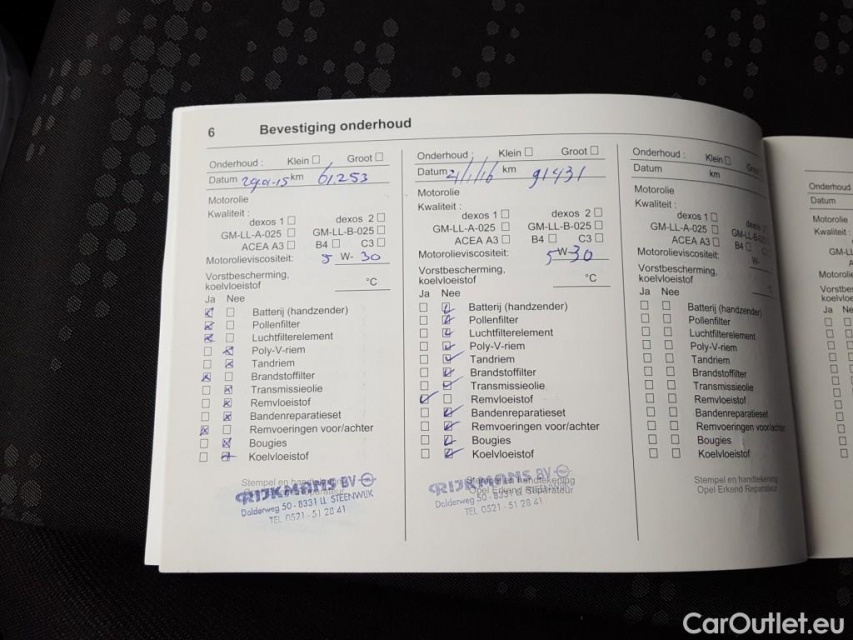 6 Bevestiging onderhoud
Onderhoud : Klein Groot
Datum km 61.253
Motorolie
Kwaliteit :
dexos 1 dexos 2
GM-LL-A-025 GM-LL-B-025
ACEA A3 B4 C3
Motorolieviscositeit: 5 W- 30
Vorstbescherming,
koelvloeistof °C
Ja Nee
Batterij (handzender)
Pollenfilter
Luchtfilterelement
Poly-V-riem
Tandriem
Brandstoffilter
Transmissieolie
Remvloeistof
Bandenreparatieset
Remvoeringen voor/achter
Bougies
Koelvloeistof
Stempel en handtekening
RIJKMANS BV
Dolderweg 50 - 8331 LL STEENWIJK
TEL 0521 - 51 28 41
Onderhoud : Klein Groot
Datum 21/1/16 km 91431
Motorolie
Kwaliteit :
dexos 1 dexos 2
GM-LL-A-025 GM-LL-B-025
ACEA A3 B4 C3
Motorolieviscositeit: 5 W- 30
Vorstbescherming,
koelvloeistof °C
Ja Nee
Batterij (handzender)
Pollenfilter
Luchtfilterelement
Poly-V-riem
Tandriem
Brandstoffilter
Transmissieolie
Remvloeistof
Bandenreparatieset
Remvoeringen voor/achter
Bougies
Koelvloeistof
Stempel en handtekening
Opel Erkend Reparateur
RIJKMANS BV
Dolderweg 50 - 8331 LL STEENWIJK
TEL 0521 - 51 28 41
Onderhoud : Klein Groot
Datum km
Motorolie
Kwaliteit :
dexos 1 dexos 2
GM-LL-A-025 GM-LL-B-025
ACEA A3 B4 C3
Motorolieviscositeit: W-
Vorstbescherming,
koelvloeistof °C
Ja Nee
Batterij (handzender)
Pollenfilter
Luchtfilterelement
Poly-V-riem
Tandriem
Brandstoffilter
Transmissieolie
Remvloeistof
Bandenreparatieset
Remvoeringen voor/achter
Bougies
Koelvloeistof
Stempel en handtekening
Opel Erkend Reparateur
Onderhoud
Datum
Motorolie
Kwaliteit :
Ja Nee
CarOutlet.eu